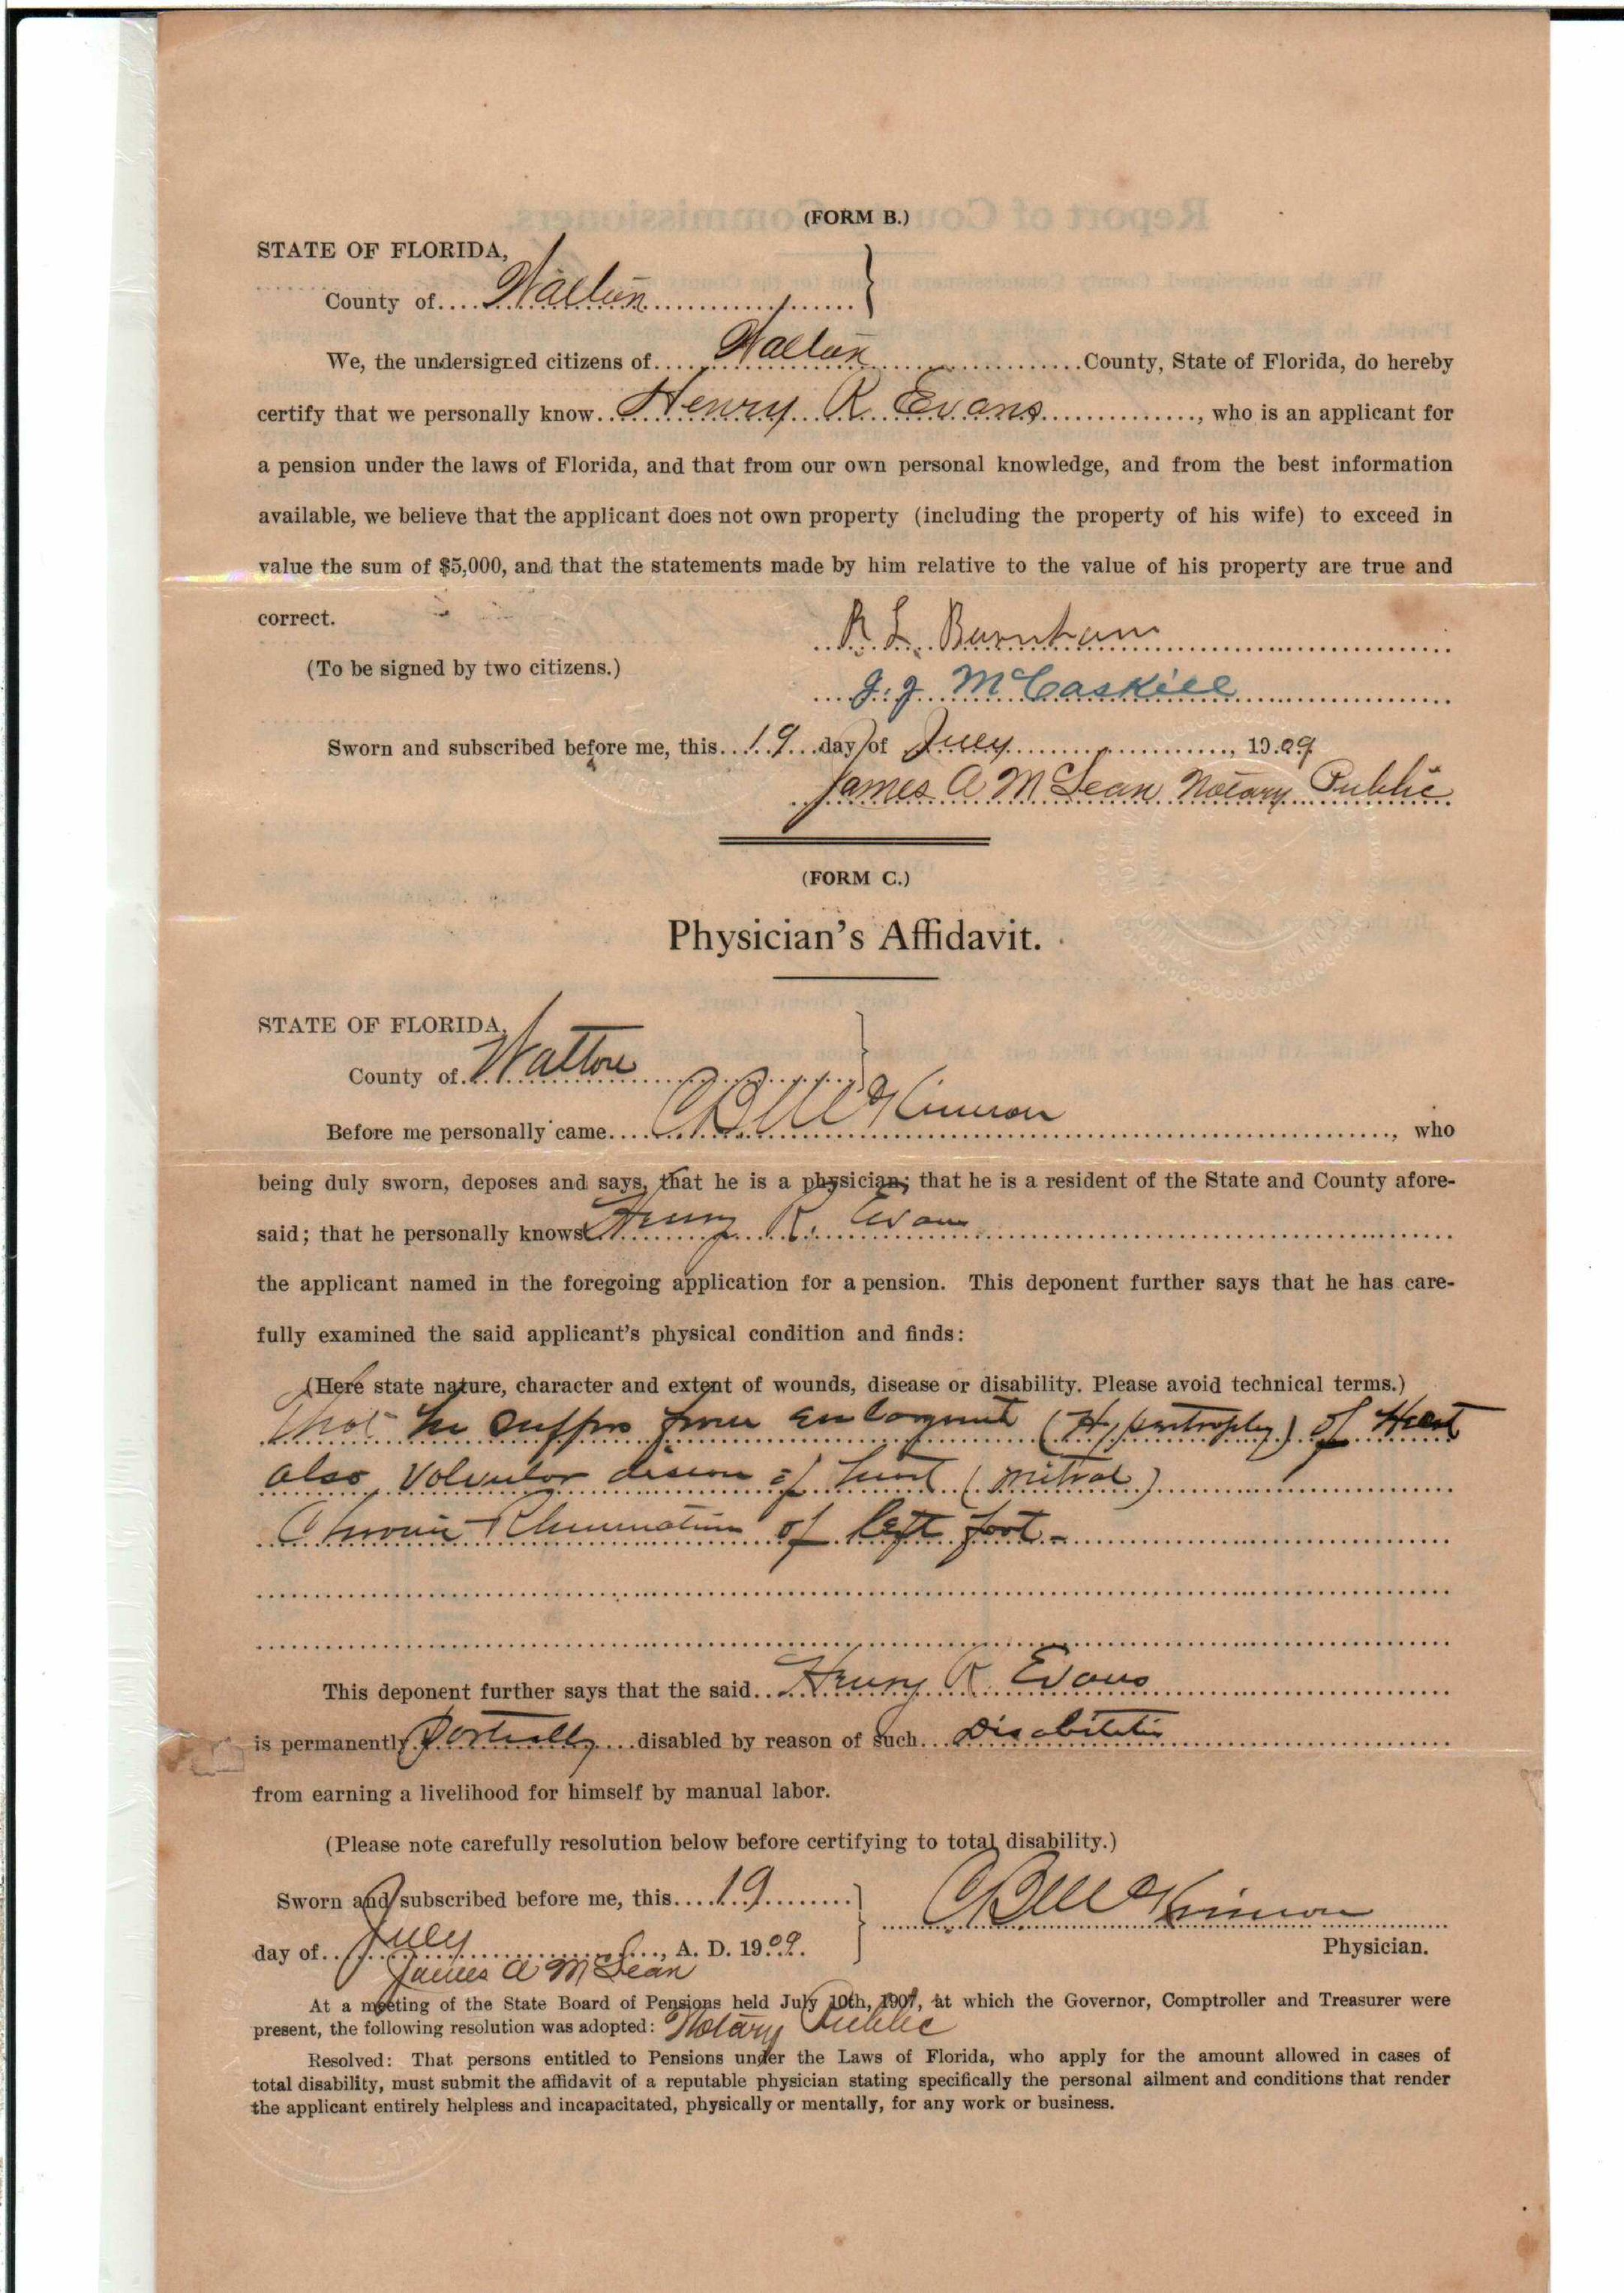 (FORM B.)
STATE OF FLORIDA,
County of.... Walton
We, the undersigned citizens of.... Walton ....County, State of Florida, do hereby
certify that we personally know.. Henry R. Evans ...., who is an applicant for
a pension under the laws of Florida, and that from our own personal knowledge, and from the best information
available, we believe that the applicant does not own property (including the property of his wife) to exceed in
value the sum of $5,000, and that the statements made by him relative to the value of his property are true and
correct.
R. L. Burnham
(To be signed by two citizens.)
J. J. McCaskill
Sworn and subscribed before me, this... 19 ...day of July ...., 1909
James A McLean Notary Public
(FORM C.)
Physician's Affidavit.
STATE OF FLORIDA,
County of. Walton
Before me personally came.... C B McKinnon ...., who
being duly sworn, deposes and says, that he is a physician; that he is a resident of the State and County afore-
said; that he personally knows Henry R. Evans
the applicant named in the foregoing application for a pension. This deponent further says that he has care-
fully examined the said applicant's physical condition and finds:
(Here state nature, character and extent of wounds, disease or disability. Please avoid technical terms.)
That he suffers from enlargement (Hypertrophy) of Heart
also Valvular disease of heart (Mitral)
Chronic Rheumatism of left foot -
This deponent further says that the said.. Henry R. Evans
is permanently partially ...disabled by reason of such... Disabilities
from earning a livelihood for himself by manual labor.
(Please note carefully resolution below before certifying to total disability.)
Sworn and subscribed before me, this.... 19
C B McKinnon
day of.. July ...., A. D. 1909.
Physician.
James A McLean
At a meeting of the State Board of Pensions held July 10th, 1907, at which the Governor, Comptroller and Treasurer were
present, the following resolution was adopted: Notary Public
Resolved: That persons entitled to Pensions under the Laws of Florida, who apply for the amount allowed in cases of
total disability, must submit the affidavit of a reputable physician stating specifically the personal ailment and conditions that render
the applicant entirely helpless and incapacitated, physically or mentally, for any work or business.